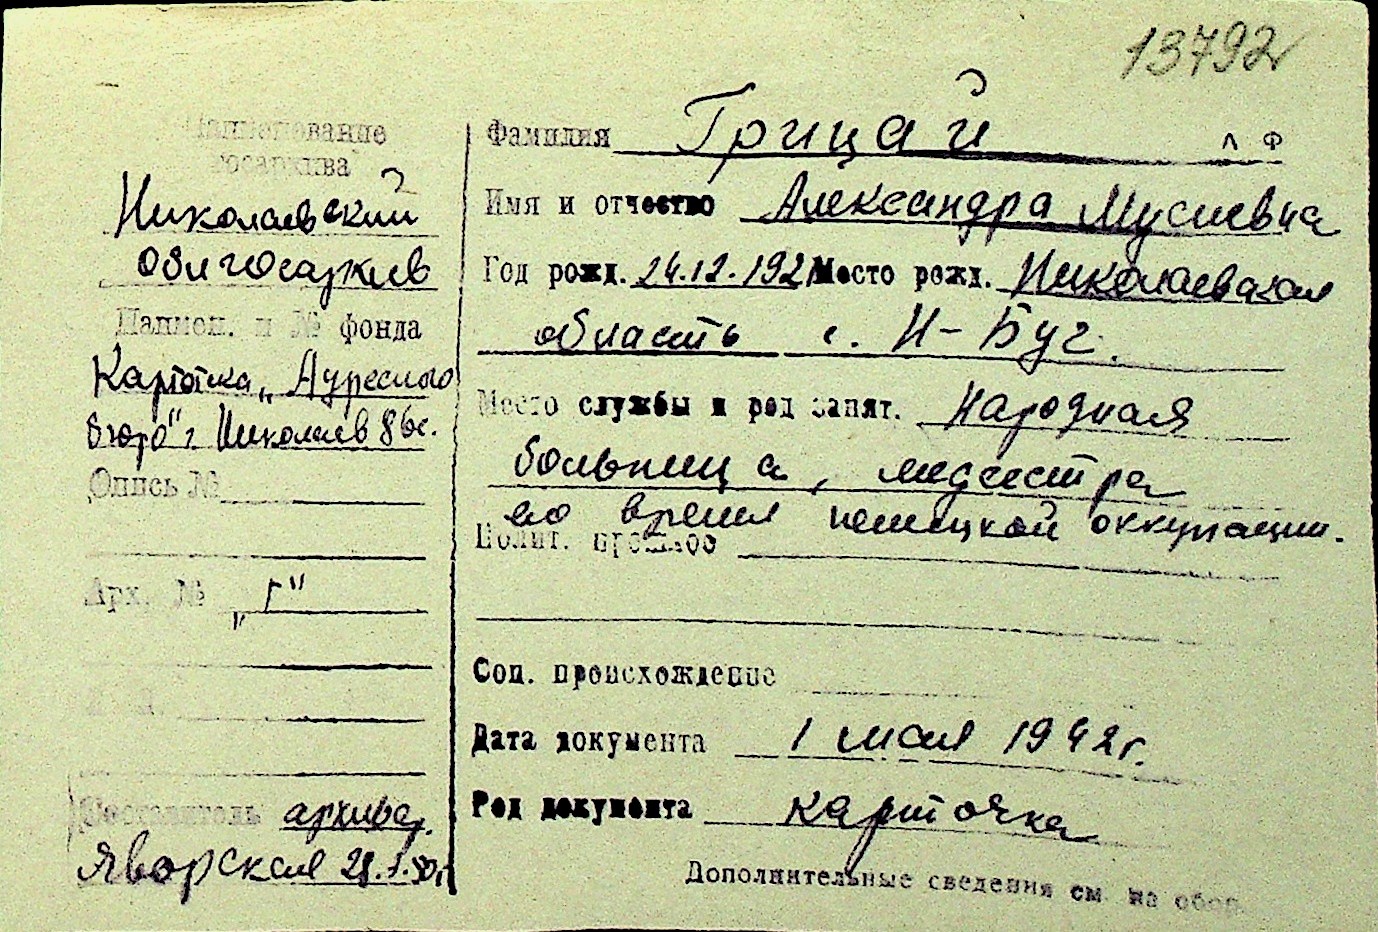 13792
Наименование
госархива
Николаевский
облгосархив
Наимен. и № фонда
Картотека „Адресного
бюро" г. Николаев
Опись №
Арх. № „Г"
Составитель архивар.
Яворская
Фамилия Грицай Л Ф
Имя и отчество Александра Мусиевна
Год рожд. 24.12.192 Место рожд. Николаевская
область с. Н-Буг.
Место службы и род занят. Народная
больница, медсестра
во время немецкой оккупации.
Полит. прошлое
Соц. происхождение
Дата документа 1 мая 1942г.
Род документа карточка
Дополнительные сведения см. на обор.